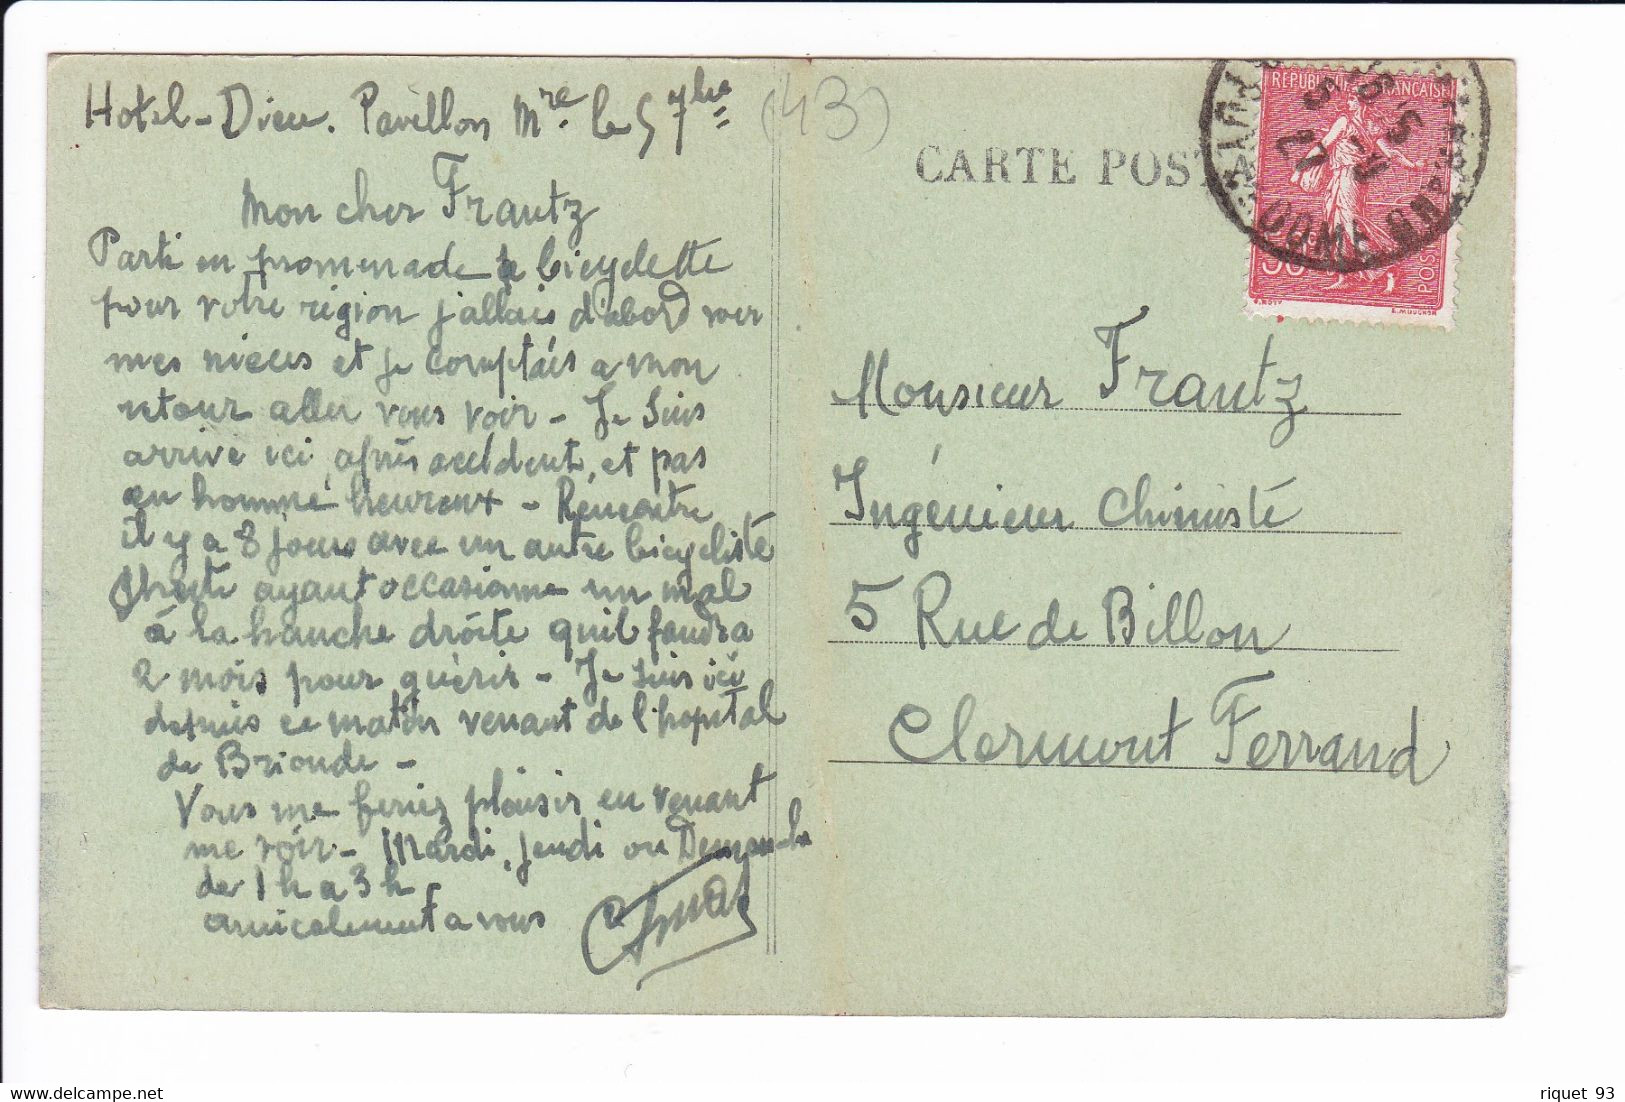 Hotel-Dieu. Pavillon Mre le 5 7bre
(43)
Mon cher Frantz
Parti en promenade a bicyclette
pour votre région j'allais d'abord voir
mes nieces et je comptais a mon
retour aller vous voir - Je suis
arrivé ici après accident, et pas
en homme heureux - Rencontre
il y a 8 jours avec un autre bicycliste
ayant occasionné un mal
à la hanche droite qu'il faudra
2 mois pour guérir - Je suis ici
depuis ce matin venant de l'hopital
de Brioude -
Vous me feriez plaisir en venant
me voir - Mardi, Jeudi ou Dimanche
de 1 h a 3 h
amicalement a vous
CARTE POST
REPUBLIQUE FRANCAISE
POSTES
E. MOUCHON
Monsieur Frantz
Ingénieur Chimiste
5 Rue de Billon
Clermont Ferrand
delcampe.net
riquet 93